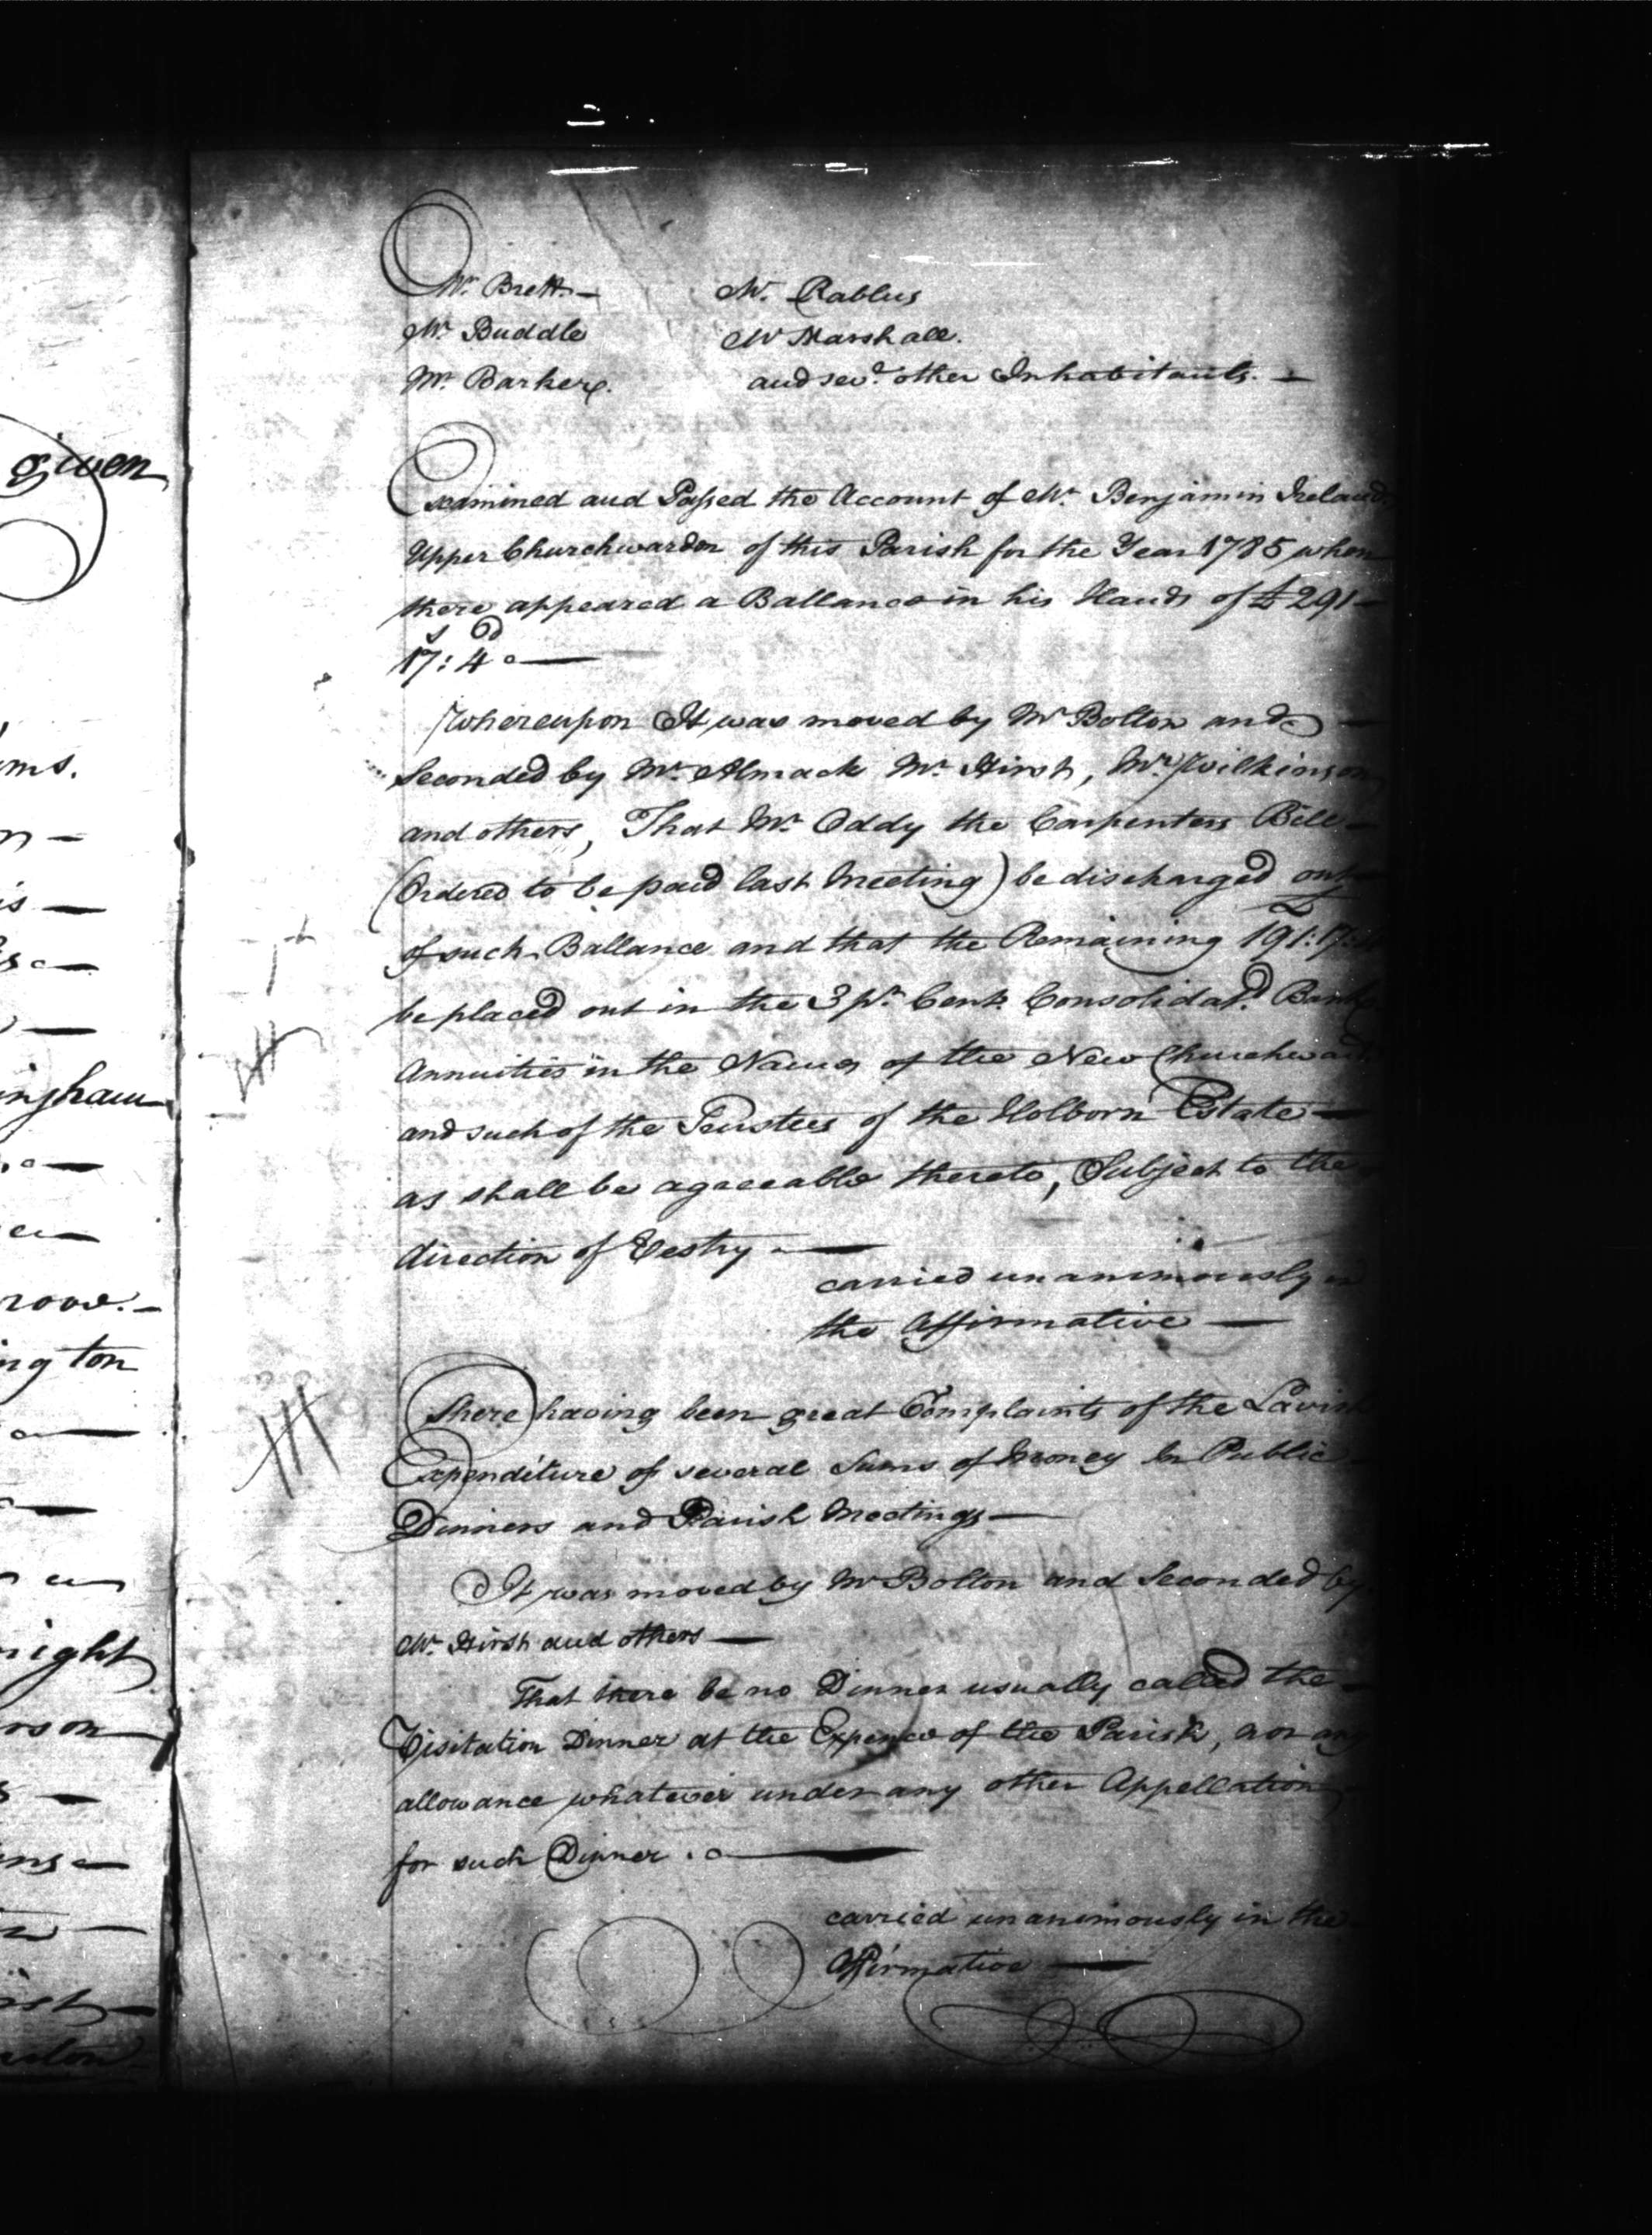 given
ms.
n —
is —
ingham
roow. —
ington
right
rson
ns —
Mr. Brett — Mr. Rablus
Mr. Buddle Mr Marshall.
Mr. Barker. and sevl. other Inhabitants. —
Examined and Passed the Account of Mr. Benjamin Ireland
Upper Churchwarden of this Parish for the Year 1785 when
there appeared a Ballance in his Hands of £291 —
s d
17: 4 —
Whereupon It was moved by Mr Bolton and —
Seconded by Mr. Almack Mr. Hirst, Mr. Wilkinson
and others, That Mr. Oddy the Carpenters Bill —
(Ordered to be paid last Meeting) be discharged out
of such Ballance and that the Remaining 191:17:
be placed out in the 3 pr. Cent. Consolidatd. Bank
Annuities in the Names of the New Churchward
and such of the Trustees of the Holborn Estate —
as shall be agreeable thereto, Subject to the
direction of Vestry —
carried unanimously in
the Affirmative —
There having been great Complaints of the Lavish
Expenditure of several Sums of Money In Public —
Dinners and Parish Meetings —
It was moved by Mr Bolton and Seconded by
Mr. Hirst and others —
That there be no Dinner usually called the —
Visitation Dinner at the Expence of the Parish, nor any
allowance whatever under any other Appellation
for such Dinner. —
carried unanimously in the
Affirmative —